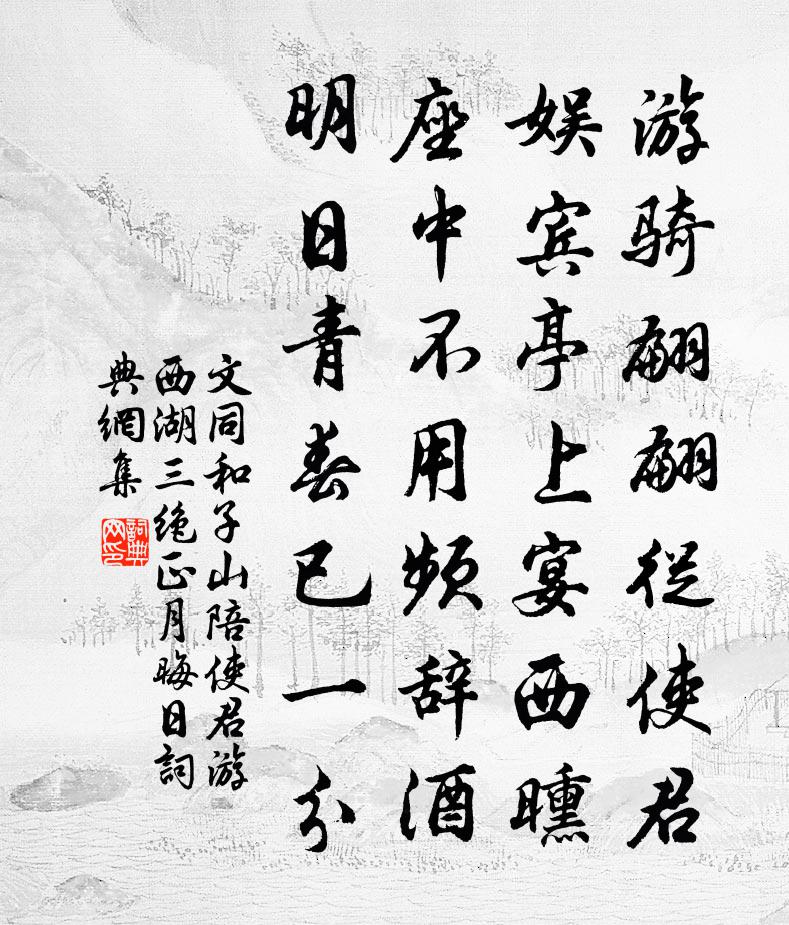 游骑翩翩从使君
娱宾亭上宴西曛
座中不用频辞酒
明日青春已一分
文同和子山陪使君游
西湖三绝正月晦日詞
典網集
詞典网印